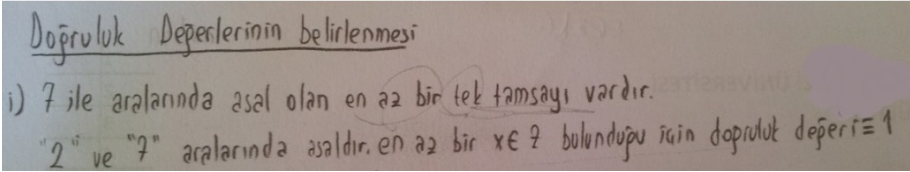 Doğruluk Değerlerinin belirlenmesi
i) 7 ile aralarında asal olan en az bir tek tamsayı vardır.
"2" ve "7" aralarında asaldır. en az bir x∈Z bulunduğu için doğruluk değeri≡1